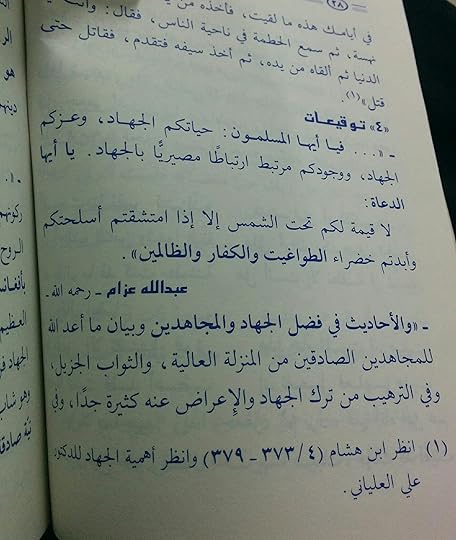 (٢٨)
في أيامك هذه ما لقيت، فأخذه من
نهسة، ثم سمع الحطمة في ناحية الناس، فقال: وأنت
الدنيا ثم ألقاه من يده، ثم أخذ سيفه فتقدم، فقاتل حتى
قتل»(١).
«٤» توقيعات
ـ «... فيا أيها المسلمون: حياتكم الجهاد، وعزكم
الجهاد، ووجودكم مرتبط ارتباطًا مصيريًّا بالجهاد. يا أيها
الدعاة:
لا قيمة لكم تحت الشمس إلا إذا امتشقتم أسلحتكم
وأبدتم خضراء الطواغيت والكفار والظالمين».
عبدالله عزام ـ رحمه الله ـ
ـ «والأحاديث في فضل الجهاد والمجاهدين وبيان ما أعد الله
للمجاهدين الصادقين من المنزلة العالية، والثواب الجزيل،
وفي الترهيب من ترك الجهاد والإعراض عنه كثيرة جدًا، وفي
(١) انظر ابن هشام (٤/ ٣٧٣ ـ ٣٧٩) وانظر أهمية الجهاد للدكتور
علي العلياني.
هو
دينهم
ركونهم
الروح
بأفغانس
العظيم
الجهاد في
وهو شاب